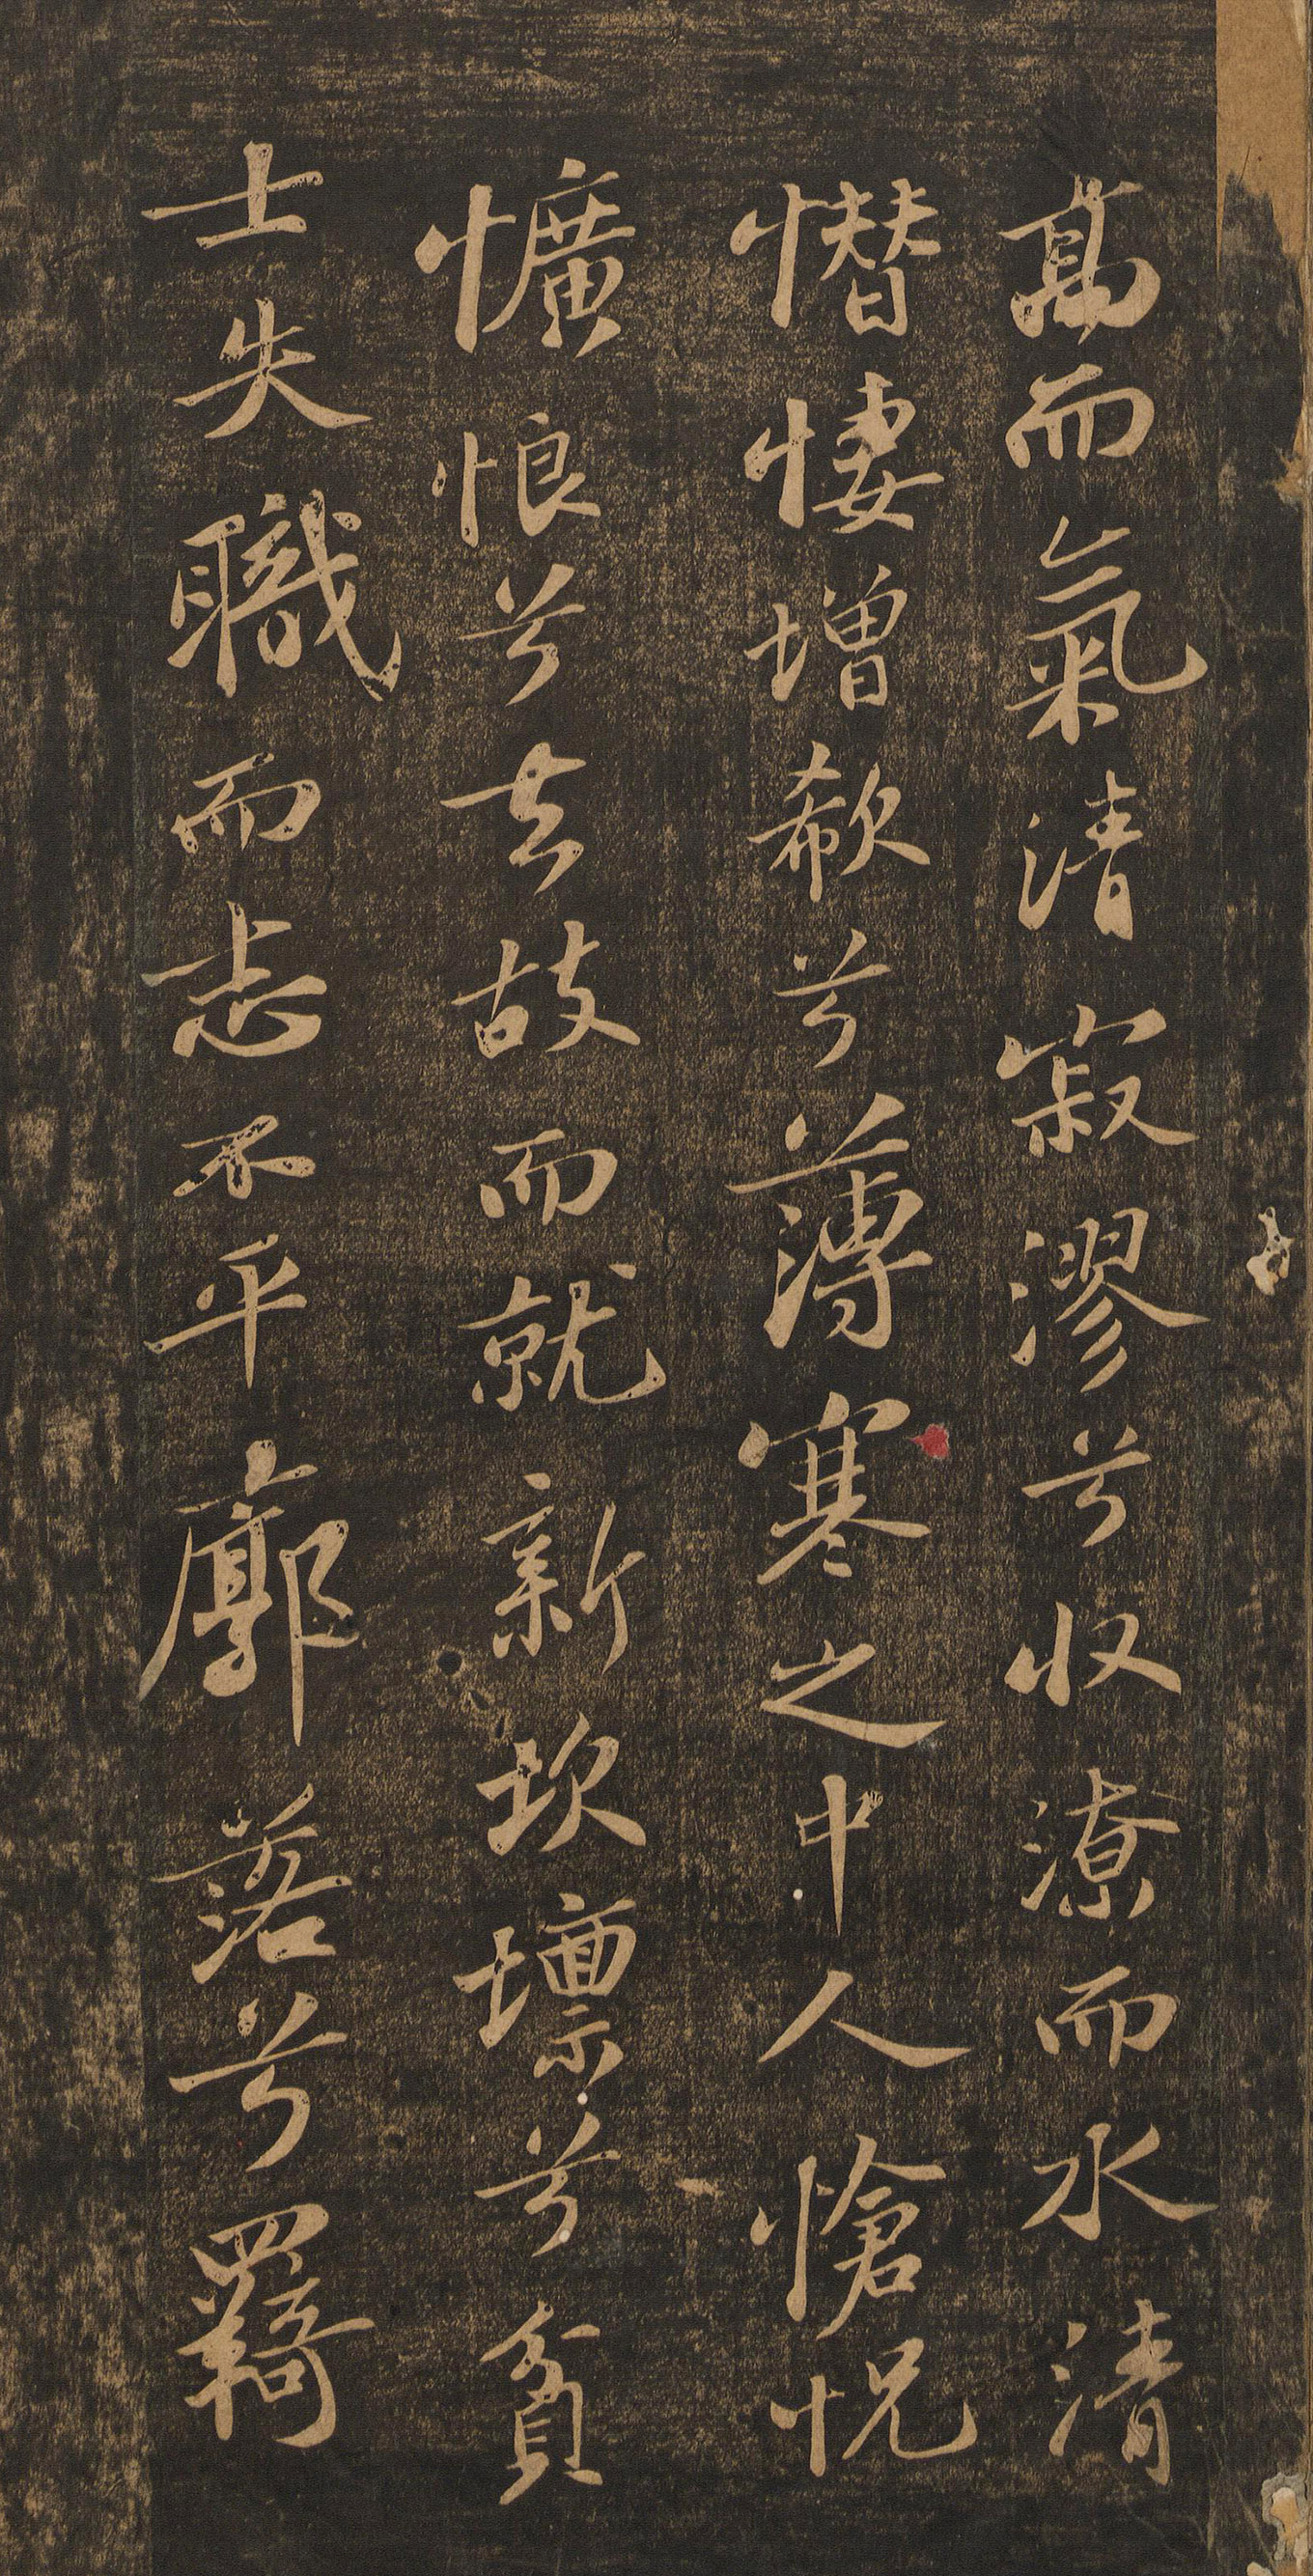 高而氣清寂漻兮收潦而水清
憯悽增欷兮薄寒之中人愴怳
懭悢兮去故而就新坎壈兮貧
士失職而志不平廓落兮羇